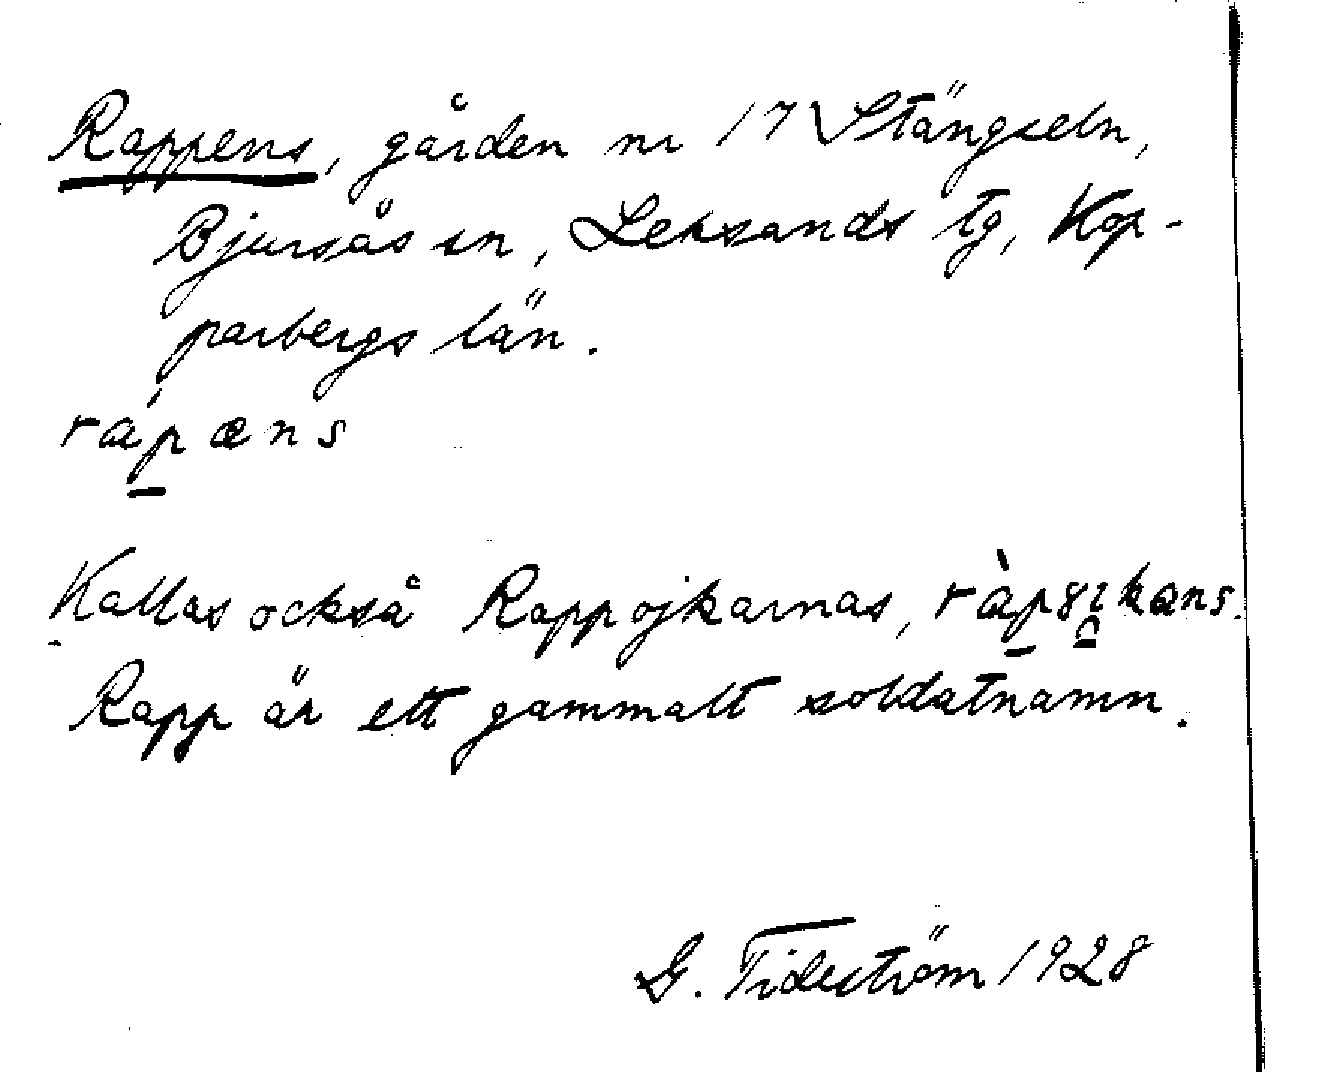 Rappens, gården nr 17 Stängseln,
Bjursås sn, Leksands tg, Kop-
parbergs län.
ráp̲æns
Kallas också Rappojkarnas,
Rapp är ett gammalt soldatnamn.
G. Tideström 1928